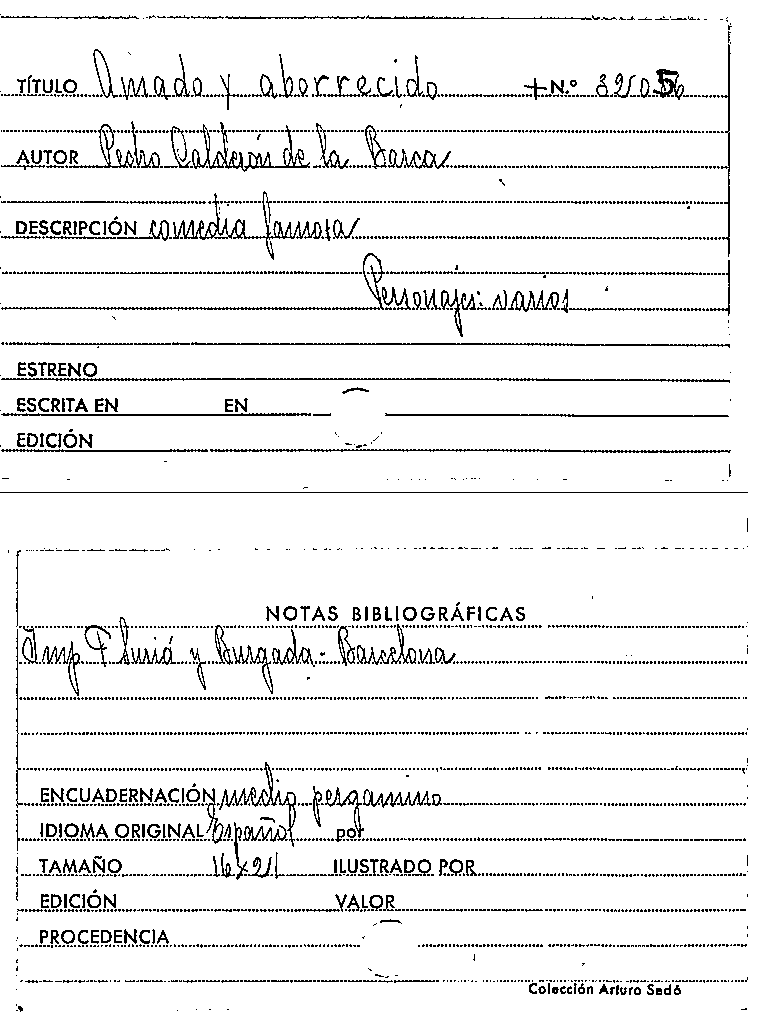 TÍTULO Amado y aborrecido + N.º
AUTOR Pedro Calderón de la Barca
DESCRIPCIÓN comedia famosa
Personajes: varios
ESTRENO
ESCRITA EN EN
EDICIÓN
NOTAS BIBLIOGRÁFICAS
Imp y Burgada - Barcelona
ENCUADERNACIÓN medio pergamino
IDIOMA ORIGINAL Español por
TAMAÑO 16x21 ILUSTRADO POR
EDICIÓN VALOR
PROCEDENCIA
Colección Arturo Sedó